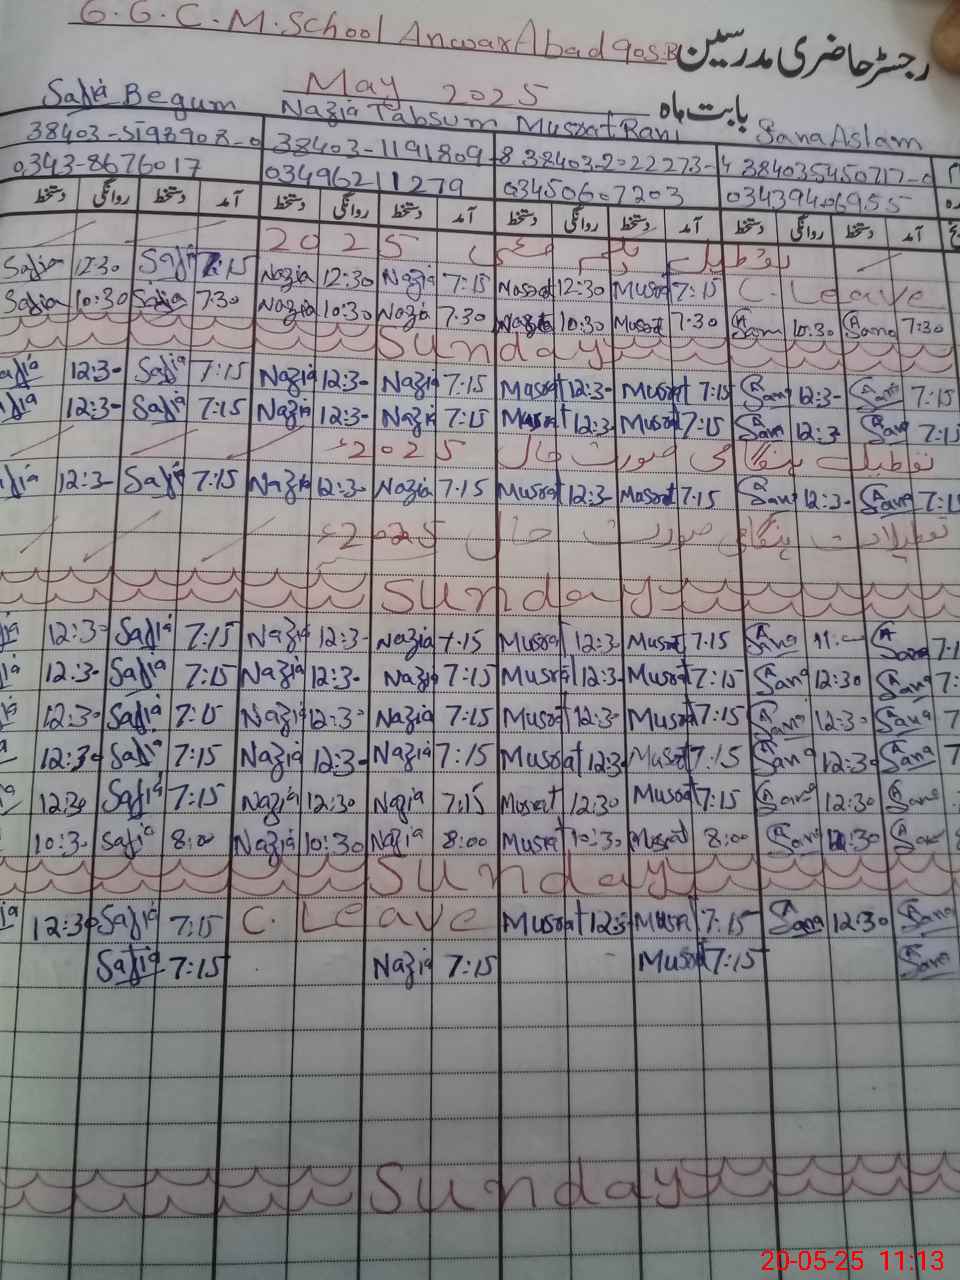 G.G.C.M.School AnwarAbad 90S.B رجسٹر حاضری مدرسین
May 2025 بابت ماہ
Safia Begum Nazia Tabsum Musrat Rani Sana Aslam
38403-5198908-0 38403-1191809-8 38403-2022273-4 384035450717-0
0343-8676017 03496211279 03450607203 03439406955
دستخط روانگی دستخط آمد دستخط روانگی دستخط آمد دستخط روانگی دستخط آمد دستخط روانگی دستخط آمد
تعطیل یکم مئی 2025
Safia 12:30 Safia 7:15 Nazia 12:30 Nazia 7:15 Musrat 12:30 Musrat 7:15 C. Leave
Safia 10:30 Safia 7:30 Nazia 10:30 Nazia 7.30 10:30 Musrat 7.30 Sana 10:30 Sana 7:30
Sunday
Safia 12:30 Safia 7:15 Nazia 12:30 Nazia 7:15 Musrat 12:30 Musrat 7:15 Sana 12:30 Sana 7:15
Safia 12:30 Safia 7:15 Nazia 12:30 Nazia 7:15 Musrat 12:30 Musrat 7:15 Sana 12:30 Sana 7:15
تعطیل ہنگامی صورت حال 2025ء
Safia 12:30 Safia 7:15 Nazia 12:30 Nazia 7.15 Musrat 12:30 Musrat 7:15 Sana 12:30 Sana 7:15
تعطیلات ہنگامی صورت حال 2025ء
Sunday
12:30 Safia 7:15 Nazia 12:30 Nazia 7.15 Musrat 12:30 Musrat 7.15 Sana 11:00 Sana
12:30 Safia 7:15 Nazia 12:30 Nazia 7:15 Musrat 12:30 Musrat 7:15 Sana 12:30 Sana
12:30 Safia 7:15 Nazia 12:30 Nazia 7:15 Musrat 12:30 Musrat 7:15 Sana 12:30 Sana
12:30 Safia 7:15 Nazia 12:30 Nazia 7:15 Musrat 12:30 Musrat 7:15 Sana 12:30 Sana
12:30 Safia 7:15 Nazia 12:30 Nazia 7:15 Musrat 12:30 Musrat 7:15 Sana 12:30 Sana
10:30 Safia 8:00 Nazia 10:30 Nazia 8:00 Musrat 10:30 Musrat 8:00 Sana Sana
Sunday
12:30 Safia 7:15 C. Leave Musrat 12:30 Musrat 7:15 Sana 12:30 Sana
Safia 7:15 Nazia 7:15 Musrat 7:15 Sana
Sunday
20-05-25 11:13